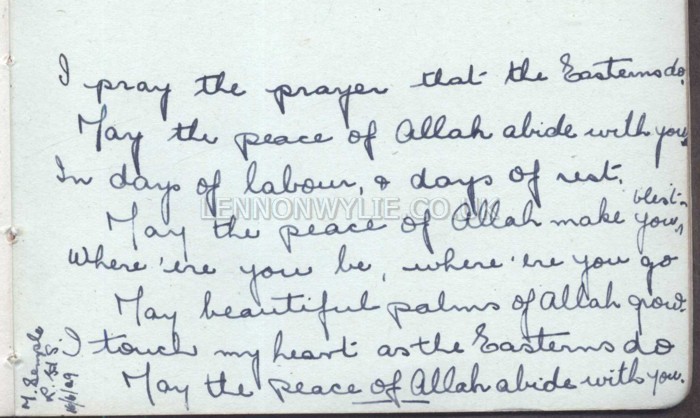 I pray the prayer that the Easterns do.
May the peace of Allah abide with you,
In days of labour, & days of rest.
May the peace of Allah make you, blest-
Where 'ere you be, where 'ere you go
May beautiful palms of Allah grow.
I touch my heart as the Easterns do
May the peace of Allah abide with you.
M. Semple
R. H. S.
LENNONWYLIE.CO.UK